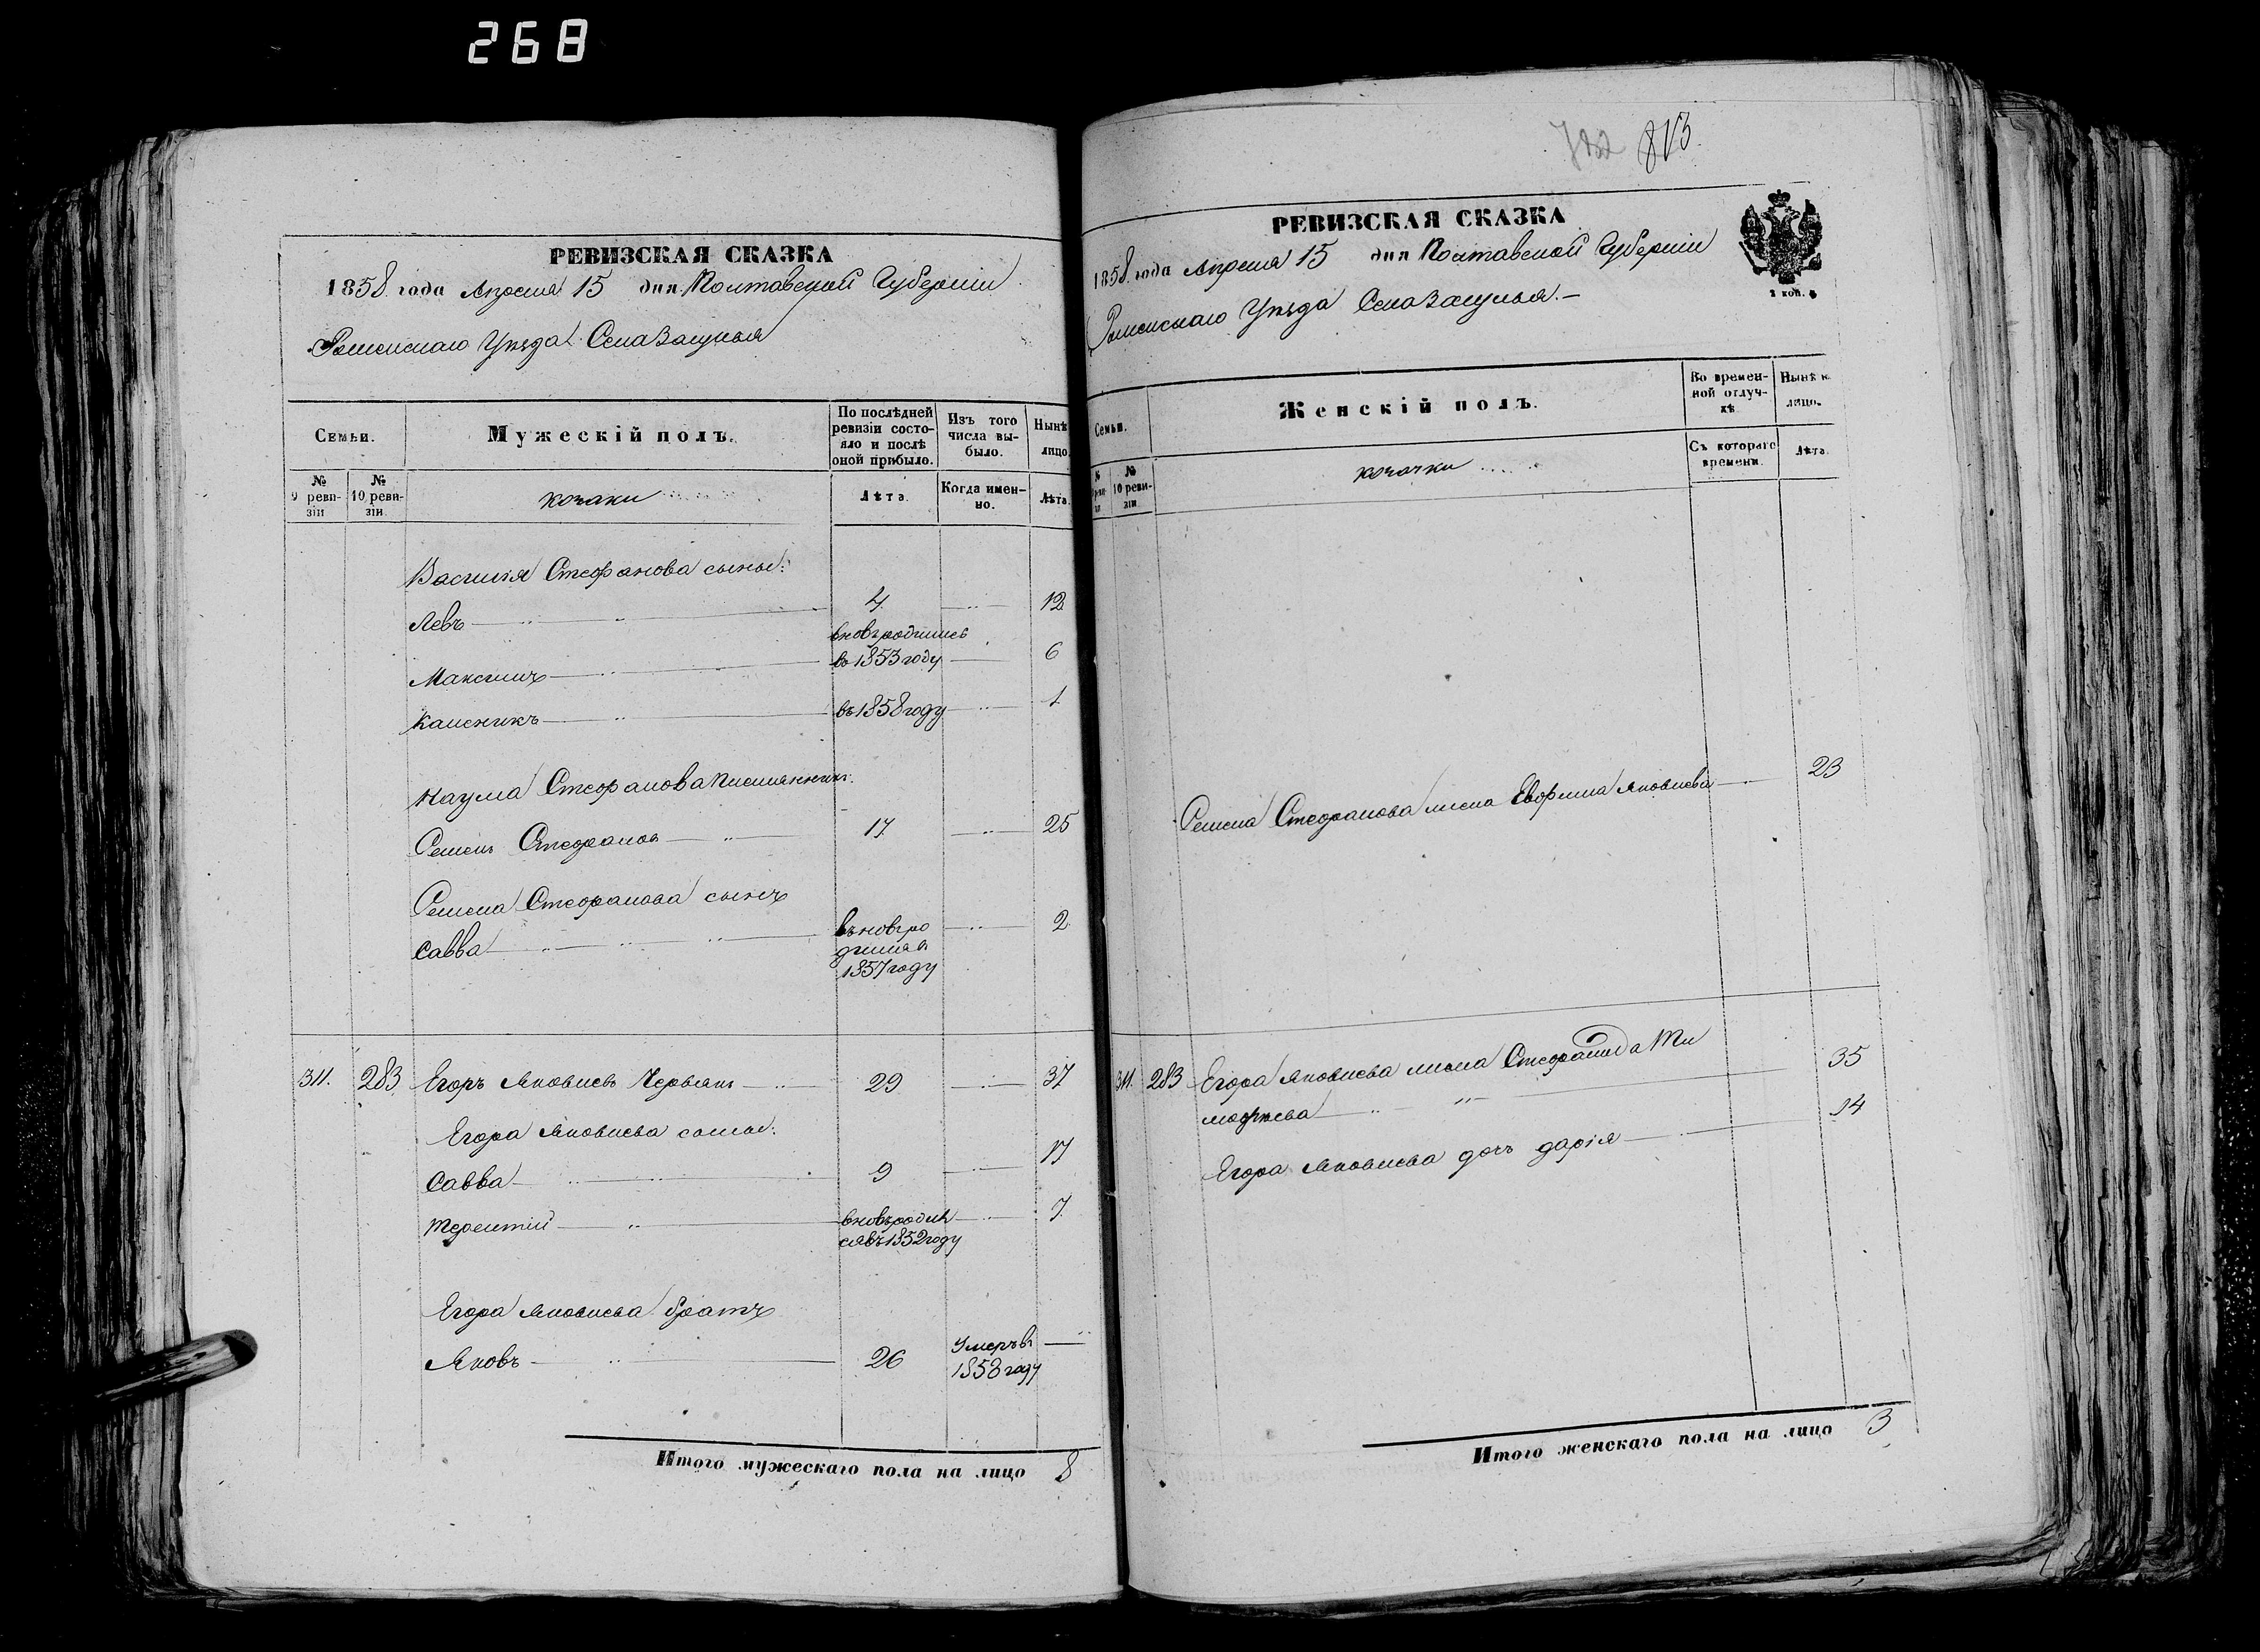 268
РЕВИЗСКАЯ СКАЗКА
1858 года Апреля 15 дня Полтавской Губерніи
Роменскаго Уѣзда Села Засулья
Семьи.
Мужескій полъ.
По послѣдней ревизіи состояло и послѣ оной прибыло.
Изъ того числа выбыло.
Нынѣ лицо.
№ 9 ревизіи
№ 10 ревизіи.
козаки
Лѣта.
Когда именно.
Лѣта.
Василія Стефанова сыны:
Левъ 4 12
вновь родились
Максимъ въ 1853 году 6
въ 1858 году 1
Наума Стефанова
Семенъ Стефановъ 17 25
Семена Стефанова сынъ
Савва вновь ро 2
дился въ
1857 году
311. 283 Егоръ Яковлевъ Червякъ 29 37
Егора Яковлева сыны:
Савва 9 17
Терентій вновь родил 7
ся въ 1852 году
Егора Яковлева братъ
Яковъ 26 Умеръ въ
1858 году
Итого мужескаго пола на лицо 8
813
РЕВИЗСКАЯ СКАЗКА
1858 года Апреля 15 дня Полтавской Губерніи
Роменскаго Уѣзда Села Засулья
2 коп. с.
Семьи.
Женскій полъ.
Во временной отлучкѣ.
Нынѣ н. лицо.
№ 10 ревизіи
козачки
Съ котораго времени.
Лѣта.
Семена Стефанова жена Яковлева 23
311. 283 Егора Яковлева жена Стефанида Ти 35
мофѣева
Егора Яковлева дочь Дарія 14
Итого женскаго пола на лицо 3